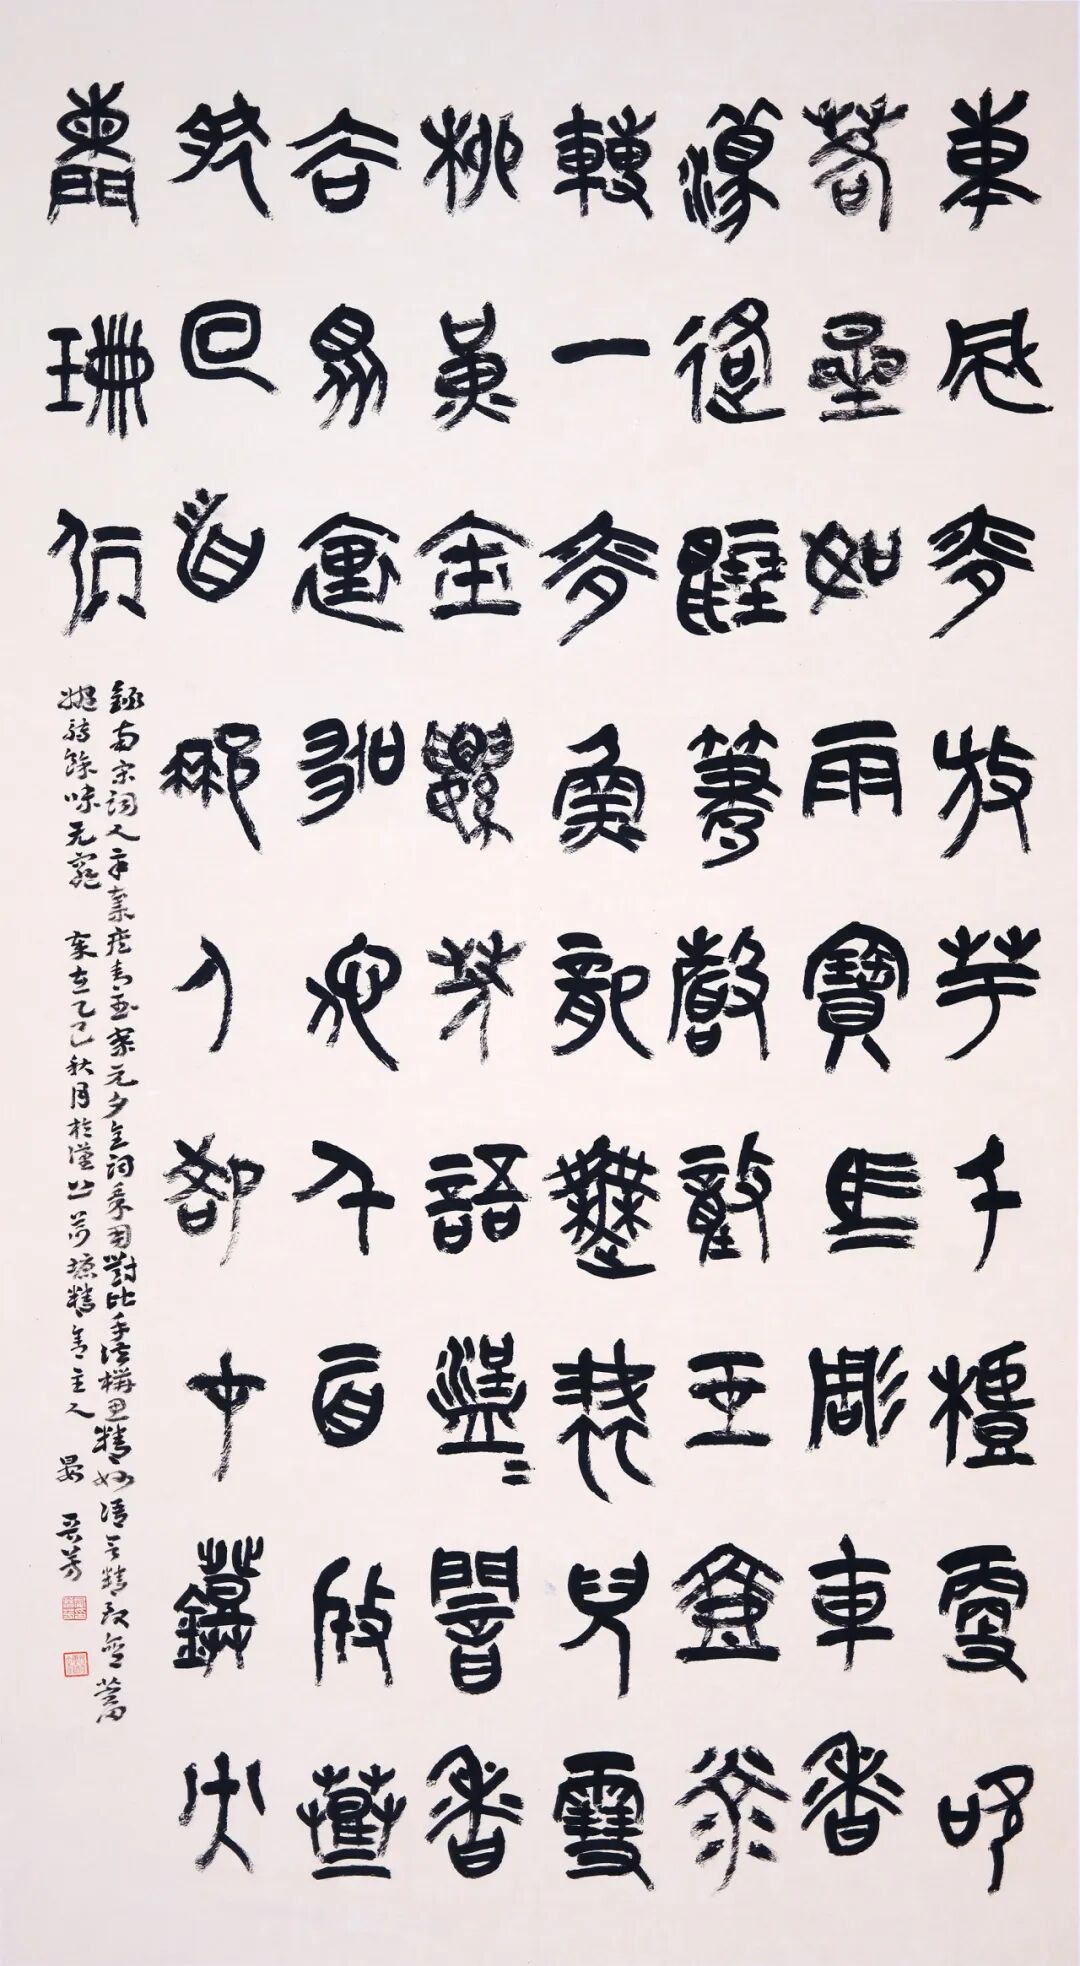 東風夜放花千樹更吹
落星如雨寶馬雕車香
滿路鳳簫聲動玉壺光
轉一夜魚龍舞蛾兒雪
柳黃金縷笑語盈〻闇香
去眾裏尋他千百度驀
然回首那人卻在燈火
闌珊處
錄南宋詞人辛棄疾青玉案元夕全詞采用對比手法構思精妙語言精致含蓄
婉轉餘味无窮 歲在乙巳秋月於漢上精舍主人